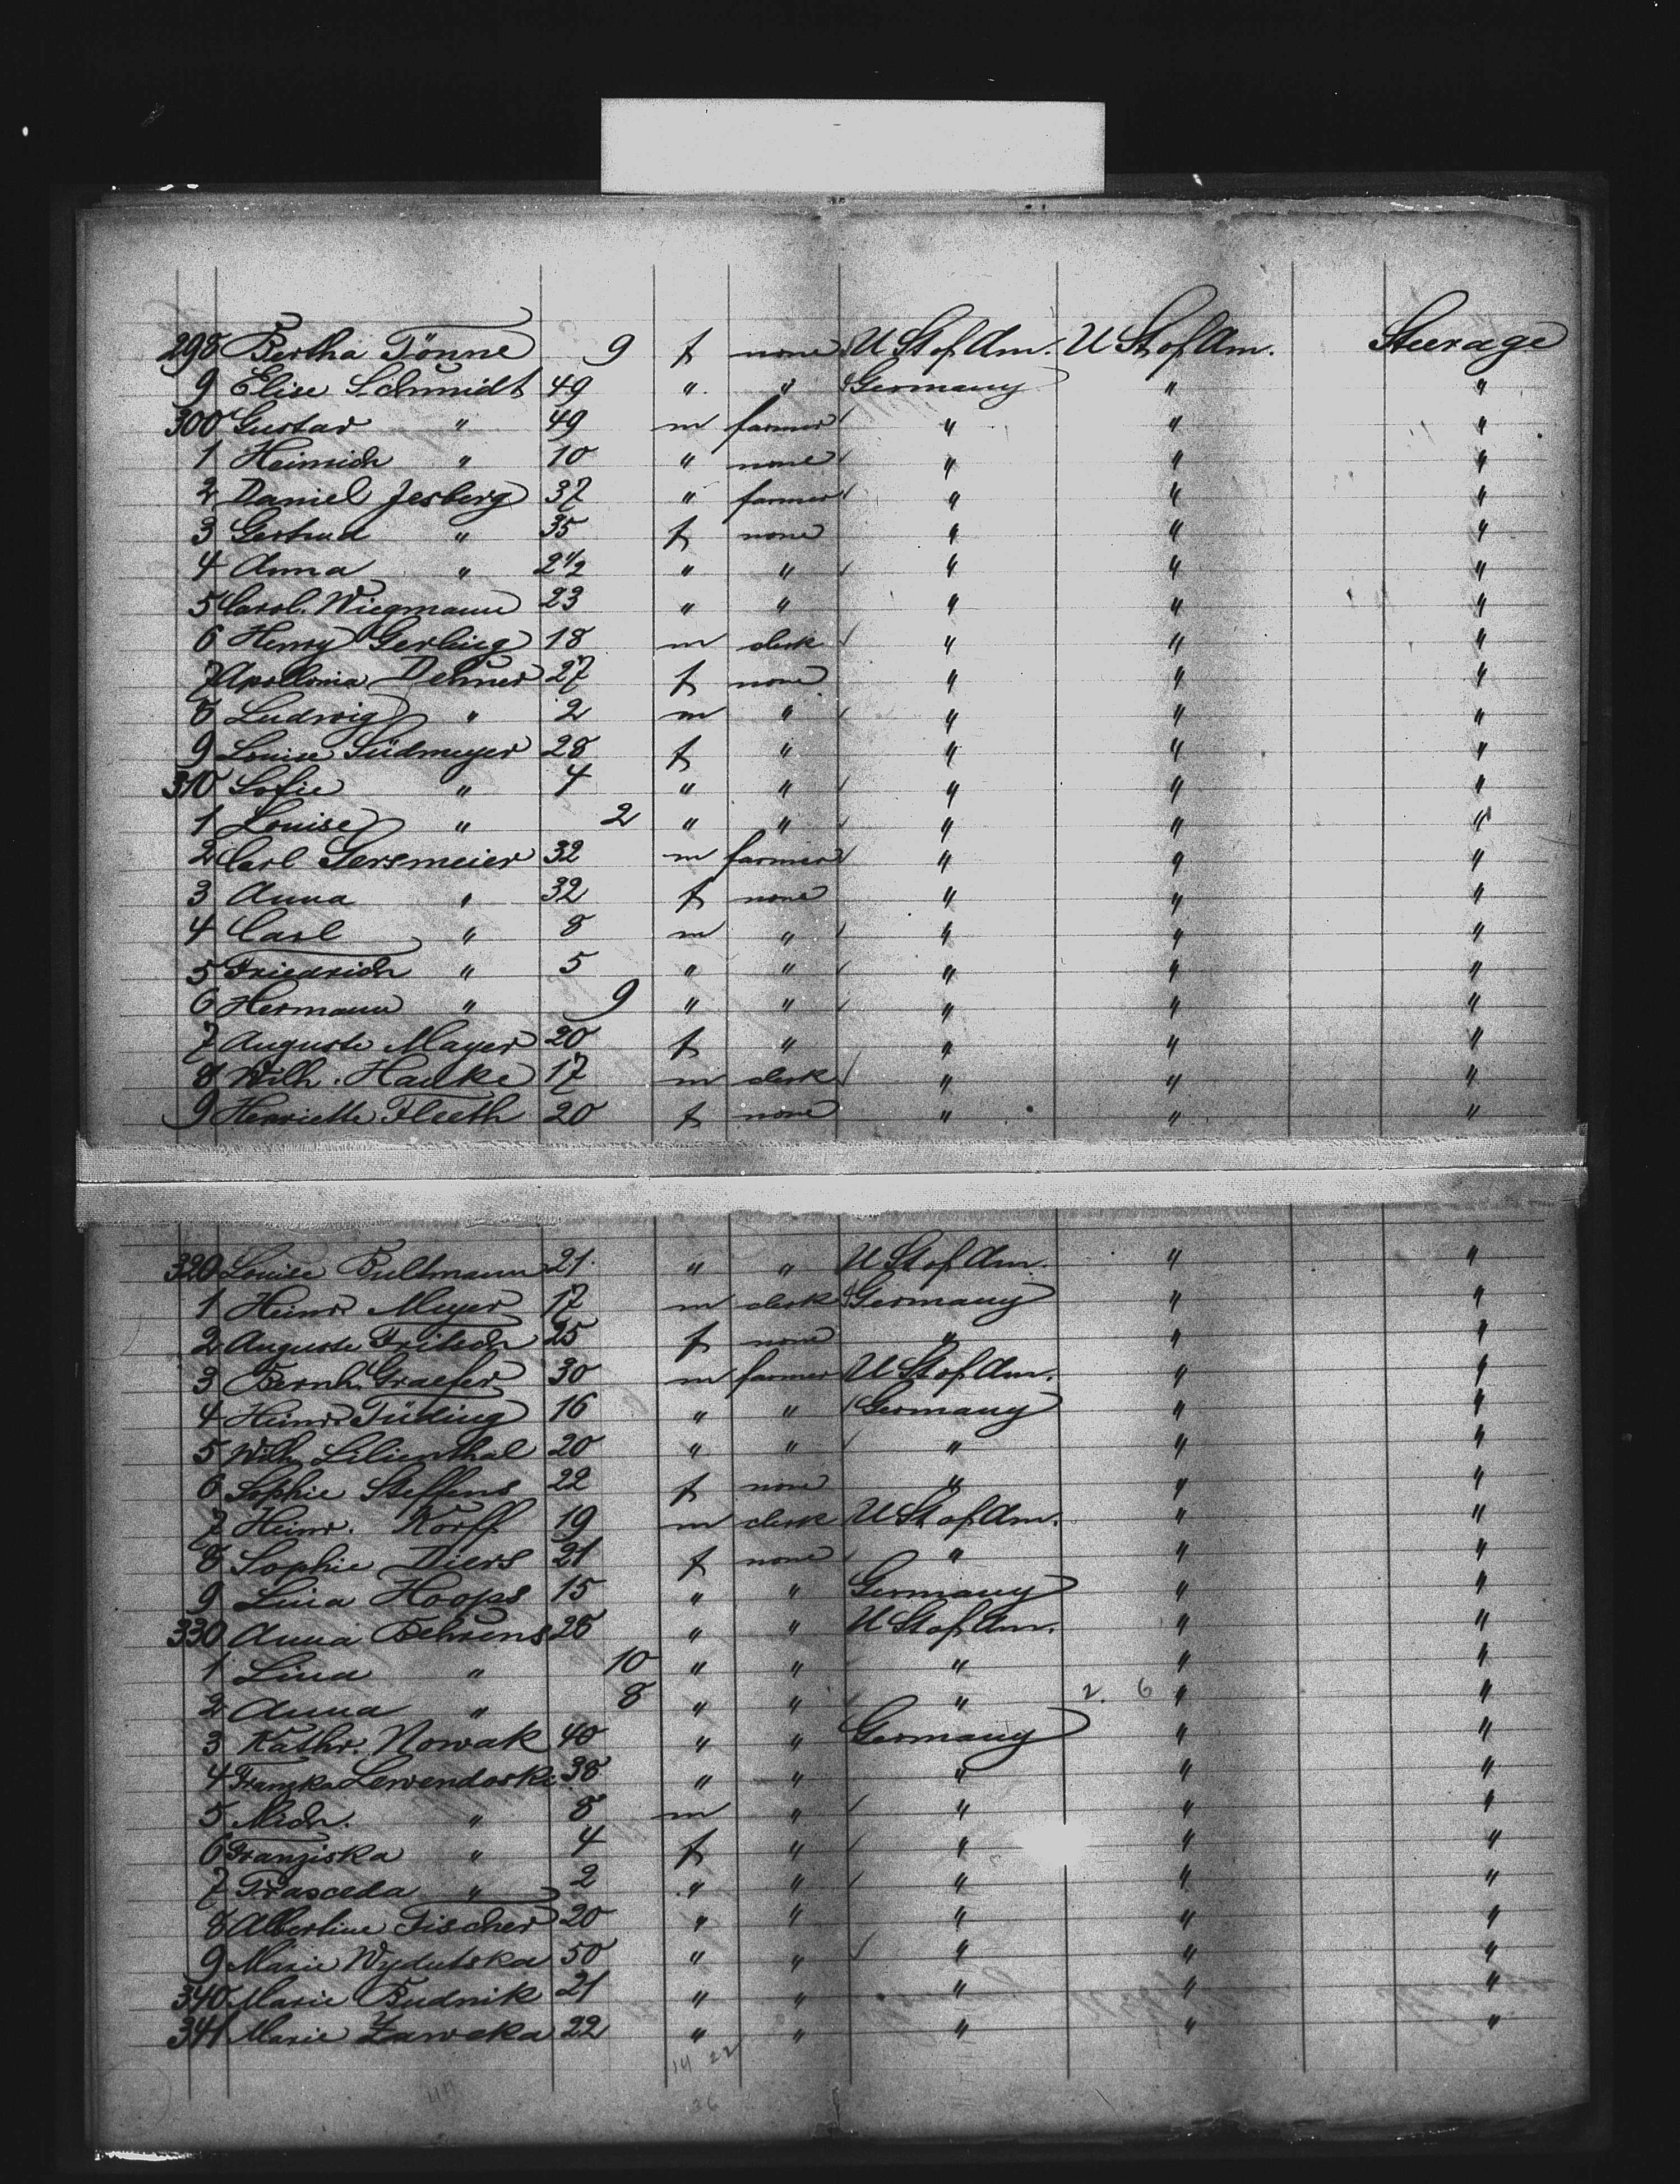 298 Bertha Tönne 9 f none U St of Am. U St of Am. Steerage
9 Elise Schmidt 49 " " Germany " "
300 Gustav " 49 m farmer " " "
1 Heinrich " 10 " none " " "
2 Daniel Jesberg 37 " farmer " " "
3 Gertrud " 35 f none " " "
4 Anna " 2 1/2 " " " " "
5 Carol. Wiegmann 23 " " " " "
6 Henry Gerling 18 m clerk " " "
7 Apollonia Dehner 27 f none " " "
8 Ludwig " 2 m " " " "
9 Louise Südmeyer 28 f " " " "
310 Sofie " 4 " " " " "
1 Louise " 2 " " " " "
2 Carl 32 m farmer " " "
3 Anna " 32 f none " " "
4 Carl " 8 m " " " "
5 Friedrich " 5 " " " " "
6 Hermann " 9 " " " " "
7 Auguste Mayer 20 f " " " "
8 Wilh. Hanke 17 m clerk " " "
9 Henriette Fleeth 20 f none " " "
320 Louise Bultmann 21 " " U St of Am. " "
1 Heinr. Meyer 17 m clerk Germany " "
2 Auguste Fritsch 25 f none " " "
3 Bernh. Graefer 30 m farmer U St of Am. " "
4 Heinr. Tüding 16 " " Germany " "
5 Wilh. Lilienthal 20 " " " " "
6 Sophie Steffens 22 f none " " "
7 Heinr. Korff 19 m clerk U St of Am. " "
8 Sophie Diers 21 f none " " "
9 Lina Hoops 15 " " Germany " "
330 Anna Behrens 28 " " U St of Am. " "
1 Lina " 10 " " " " "
2 Anna " 8 " " " 2. 6 " "
3 Kathr. Nowak 40 " " Germany " "
4 Franzka Lewendoski 38 " " " " "
5 Mich. " 8 m " " " "
6 Franziska " 4 f " " " "
7 Prasceda " 2 " " " " "
8 Albertine Fischer 20 " " " " "
9 Marie Wydutska 50 " " " " "
340 Marie Budnik 21 " " " " "
341 Marie Zaweka 22 " " " " "
14 22
36